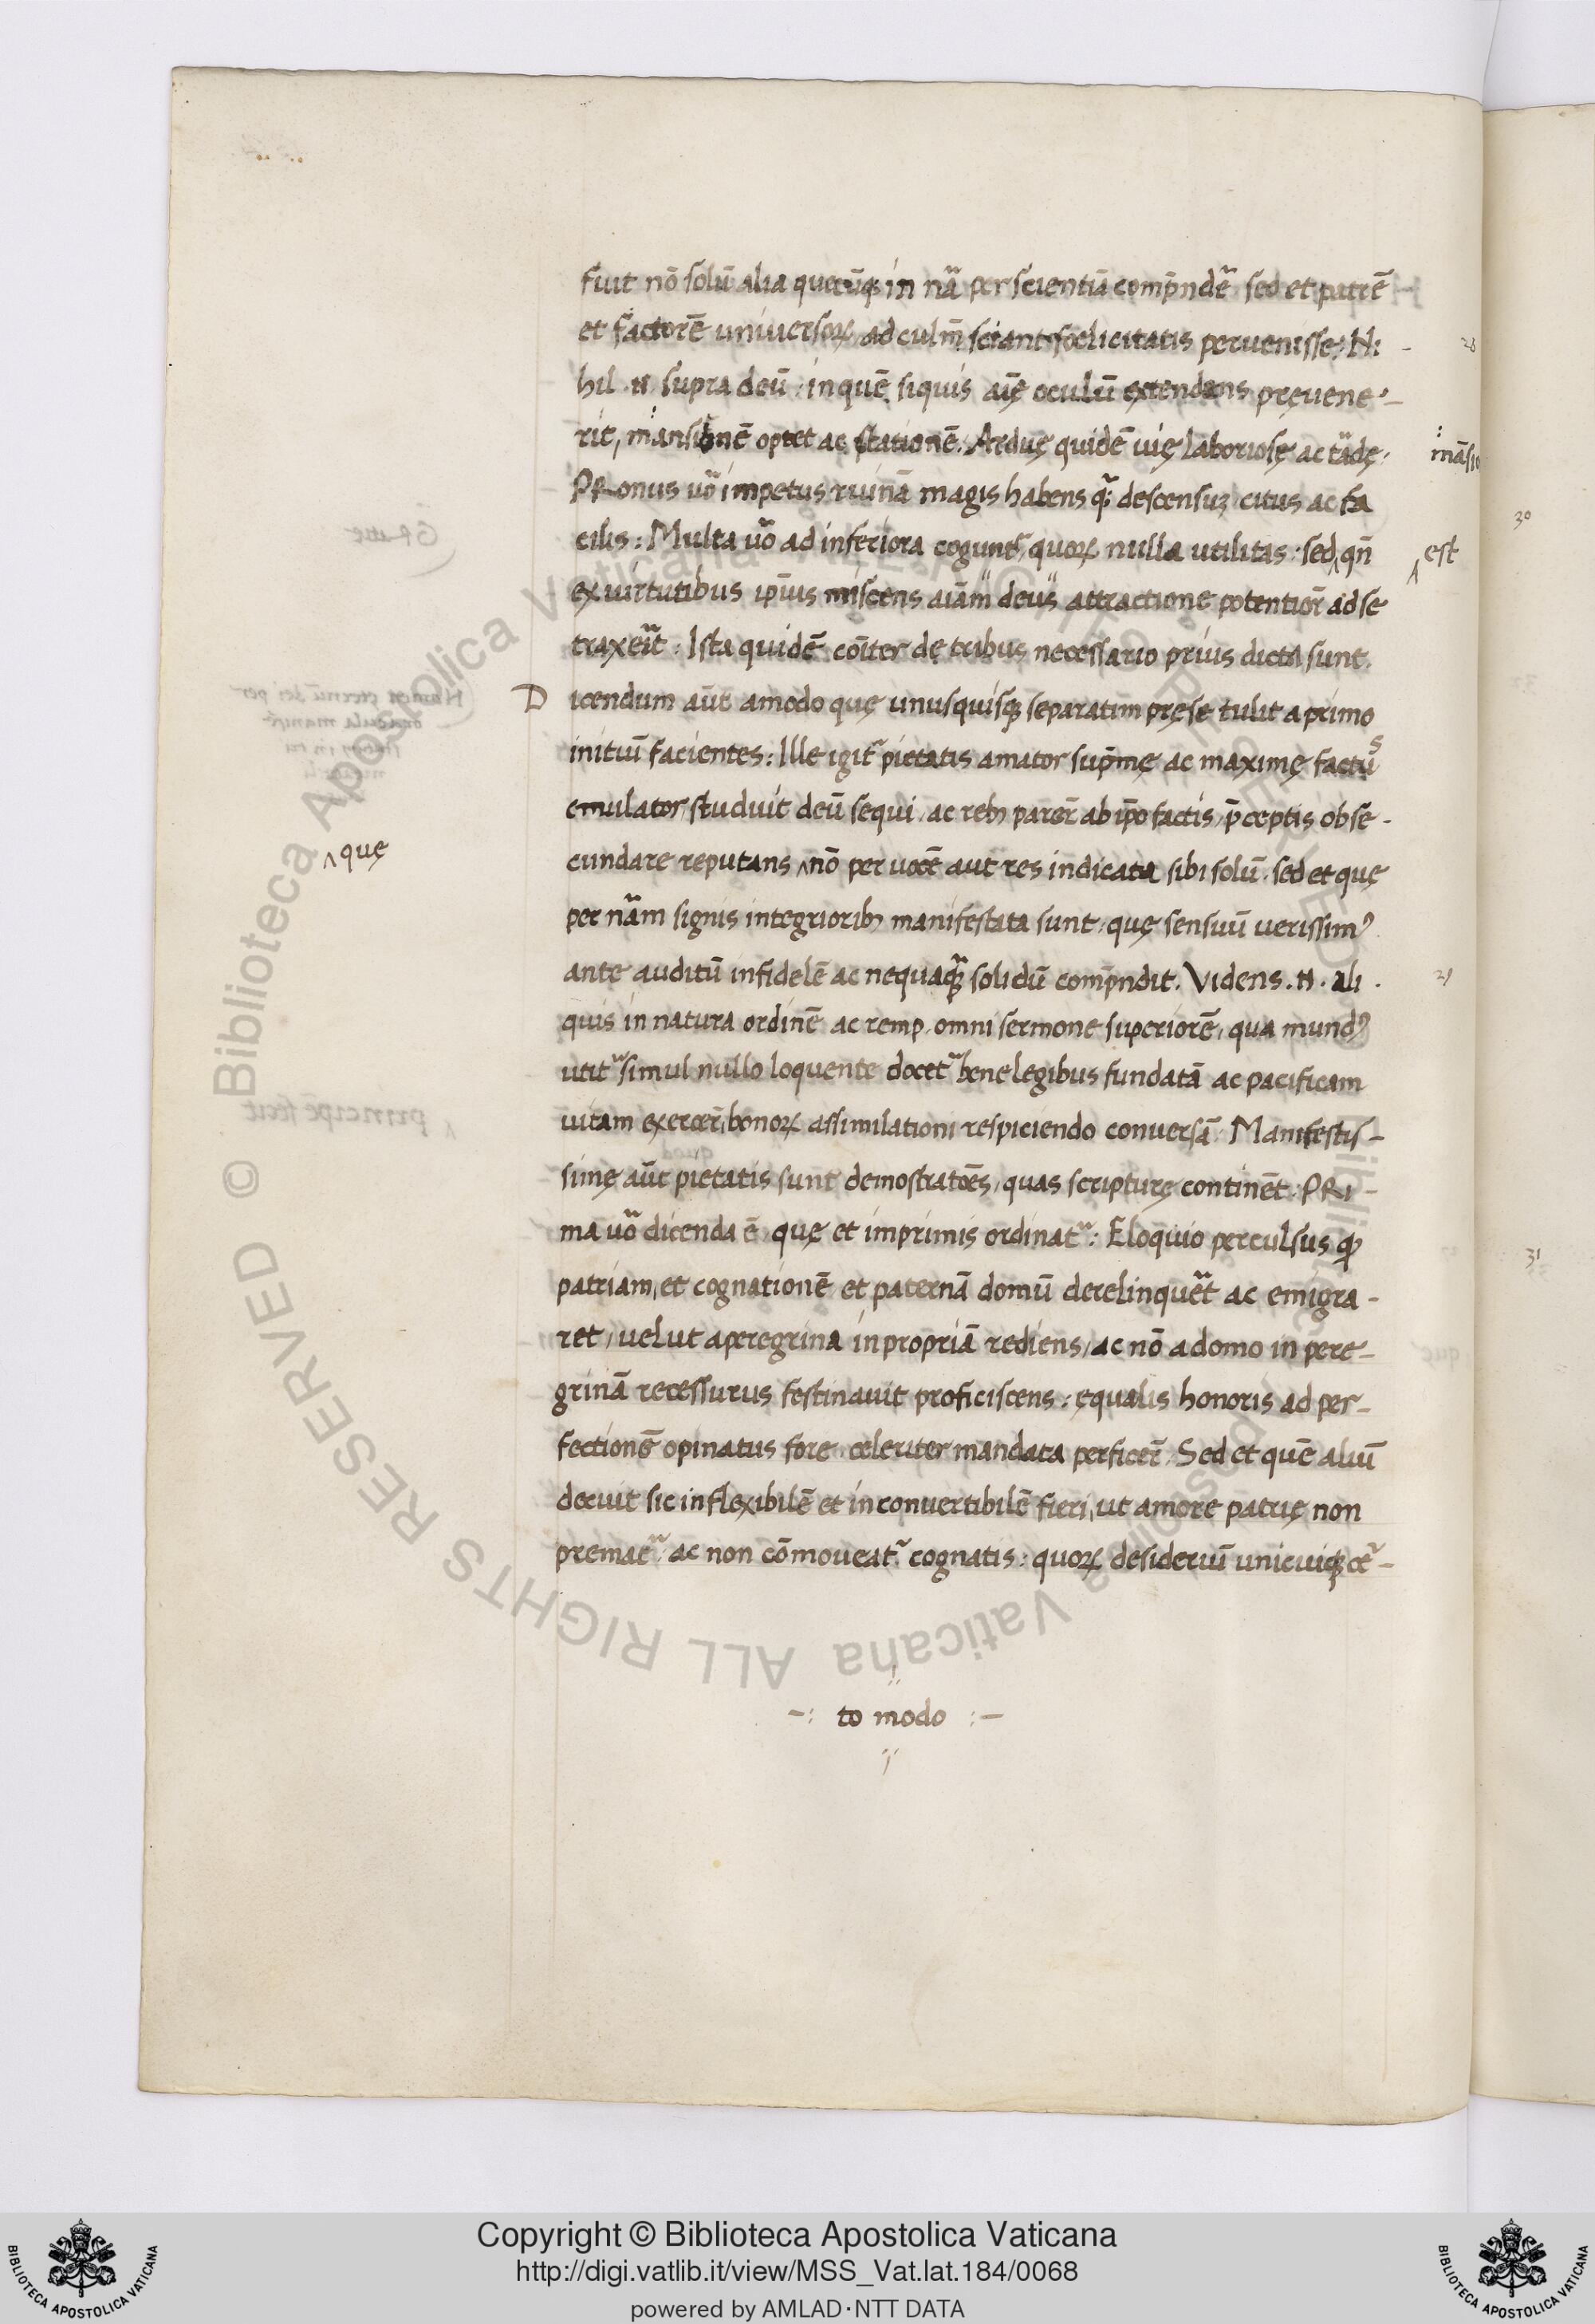 fuit nō solū alia quecūqȝ in nã per scientiā comp̄ndẽ sed et patrē
et factorē universoꝝ, ad culm̄ sciant foelicitatis pervenisse: Ni
hil .n. supra deū: in quē siquis aīę oculū extendens pręvene-
rit, mansionē optet ac stationē. Arduę quidē vię laboriosę ac tãdę.
PRonus vo impetus ruinā magis habens qȝ descensuȝ citus ac fa
cilis: Multa vo ad inferiora cogunt, quoꝝ nulla utilitas: sed ‸ qn̄
ex virtutibus ip̄ius miscens aīam deus attractione potentior̄ ad se
traxerit: Ista quidē cōiter de tribus necessario prius dicta sunt.
D icendum aūt amodo quę unusquisqȝ separatim pręse tulit a primo
initiū facientes: Ille igitr pietatis amator sup̄mę ac maximę factus
emulator studuit deū sequi, ac rebꝫ parer̄ ab ip̄o factis, p̄ceptis obse-
cundare reputans ‸ nō per vocē aut res indicata sibi solū, sed et quę
per nãm signis integrioribꝫ manifestata sunt, quę sensuū verissimꝰ
ante auditū infidelē ac nequaqȝ solidū comp̄ndit. Videns .n. ali.
quis in natura ordinē ac remp. omni sermone superiorē, qua mundꝰ
utitr simul nullo loquente docetr bene legibus fundatā ac pacificam
vitam exercer̄, bonoꝝ assimilationi respiciendo conversā. Manifestis-
simę aūt pietatis sunt demostratōes, quas scripturę continēt. PRi-
ma vo dicenda ē, quę et imprimis ordinatr: Eloquio perculsus qꝫ
patriam, et cognationē et paternā domū derelinqueret ac emigra-
ret, velut a peregrina in propriā rediens, ac nō a domo in pere-
grinā recessurus festinavit proficiscens: ęqualis honoris ad per-
fectionē opinatus fore celeriter mandata perficer̄. Sed et quē aliū
decuit sic inflexibilē et inconvertibilē fieri, ut amore patrię non
prematr ac non cōmoveatr cognatis: quoꝝ desideriū unicuiqȝ cer-
-: to modo :-
28
mãsio
30
‸ est
‸ quę
29
31
Copyright © Biblioteca Apostolica Vaticana
http://digi.vatlib.it/view/MSS_Vat.lat.184/0068
powered by AMLAD·NTT DATA